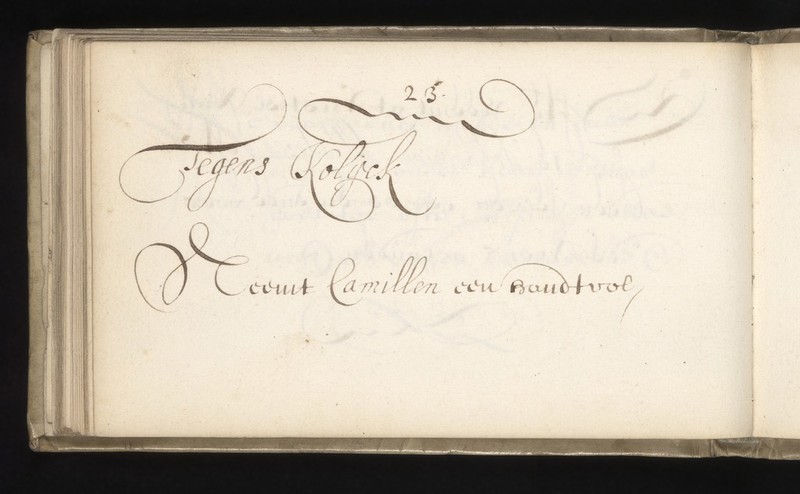 23.
Tegens Kolyck
Neemt Camillen een handtvol,